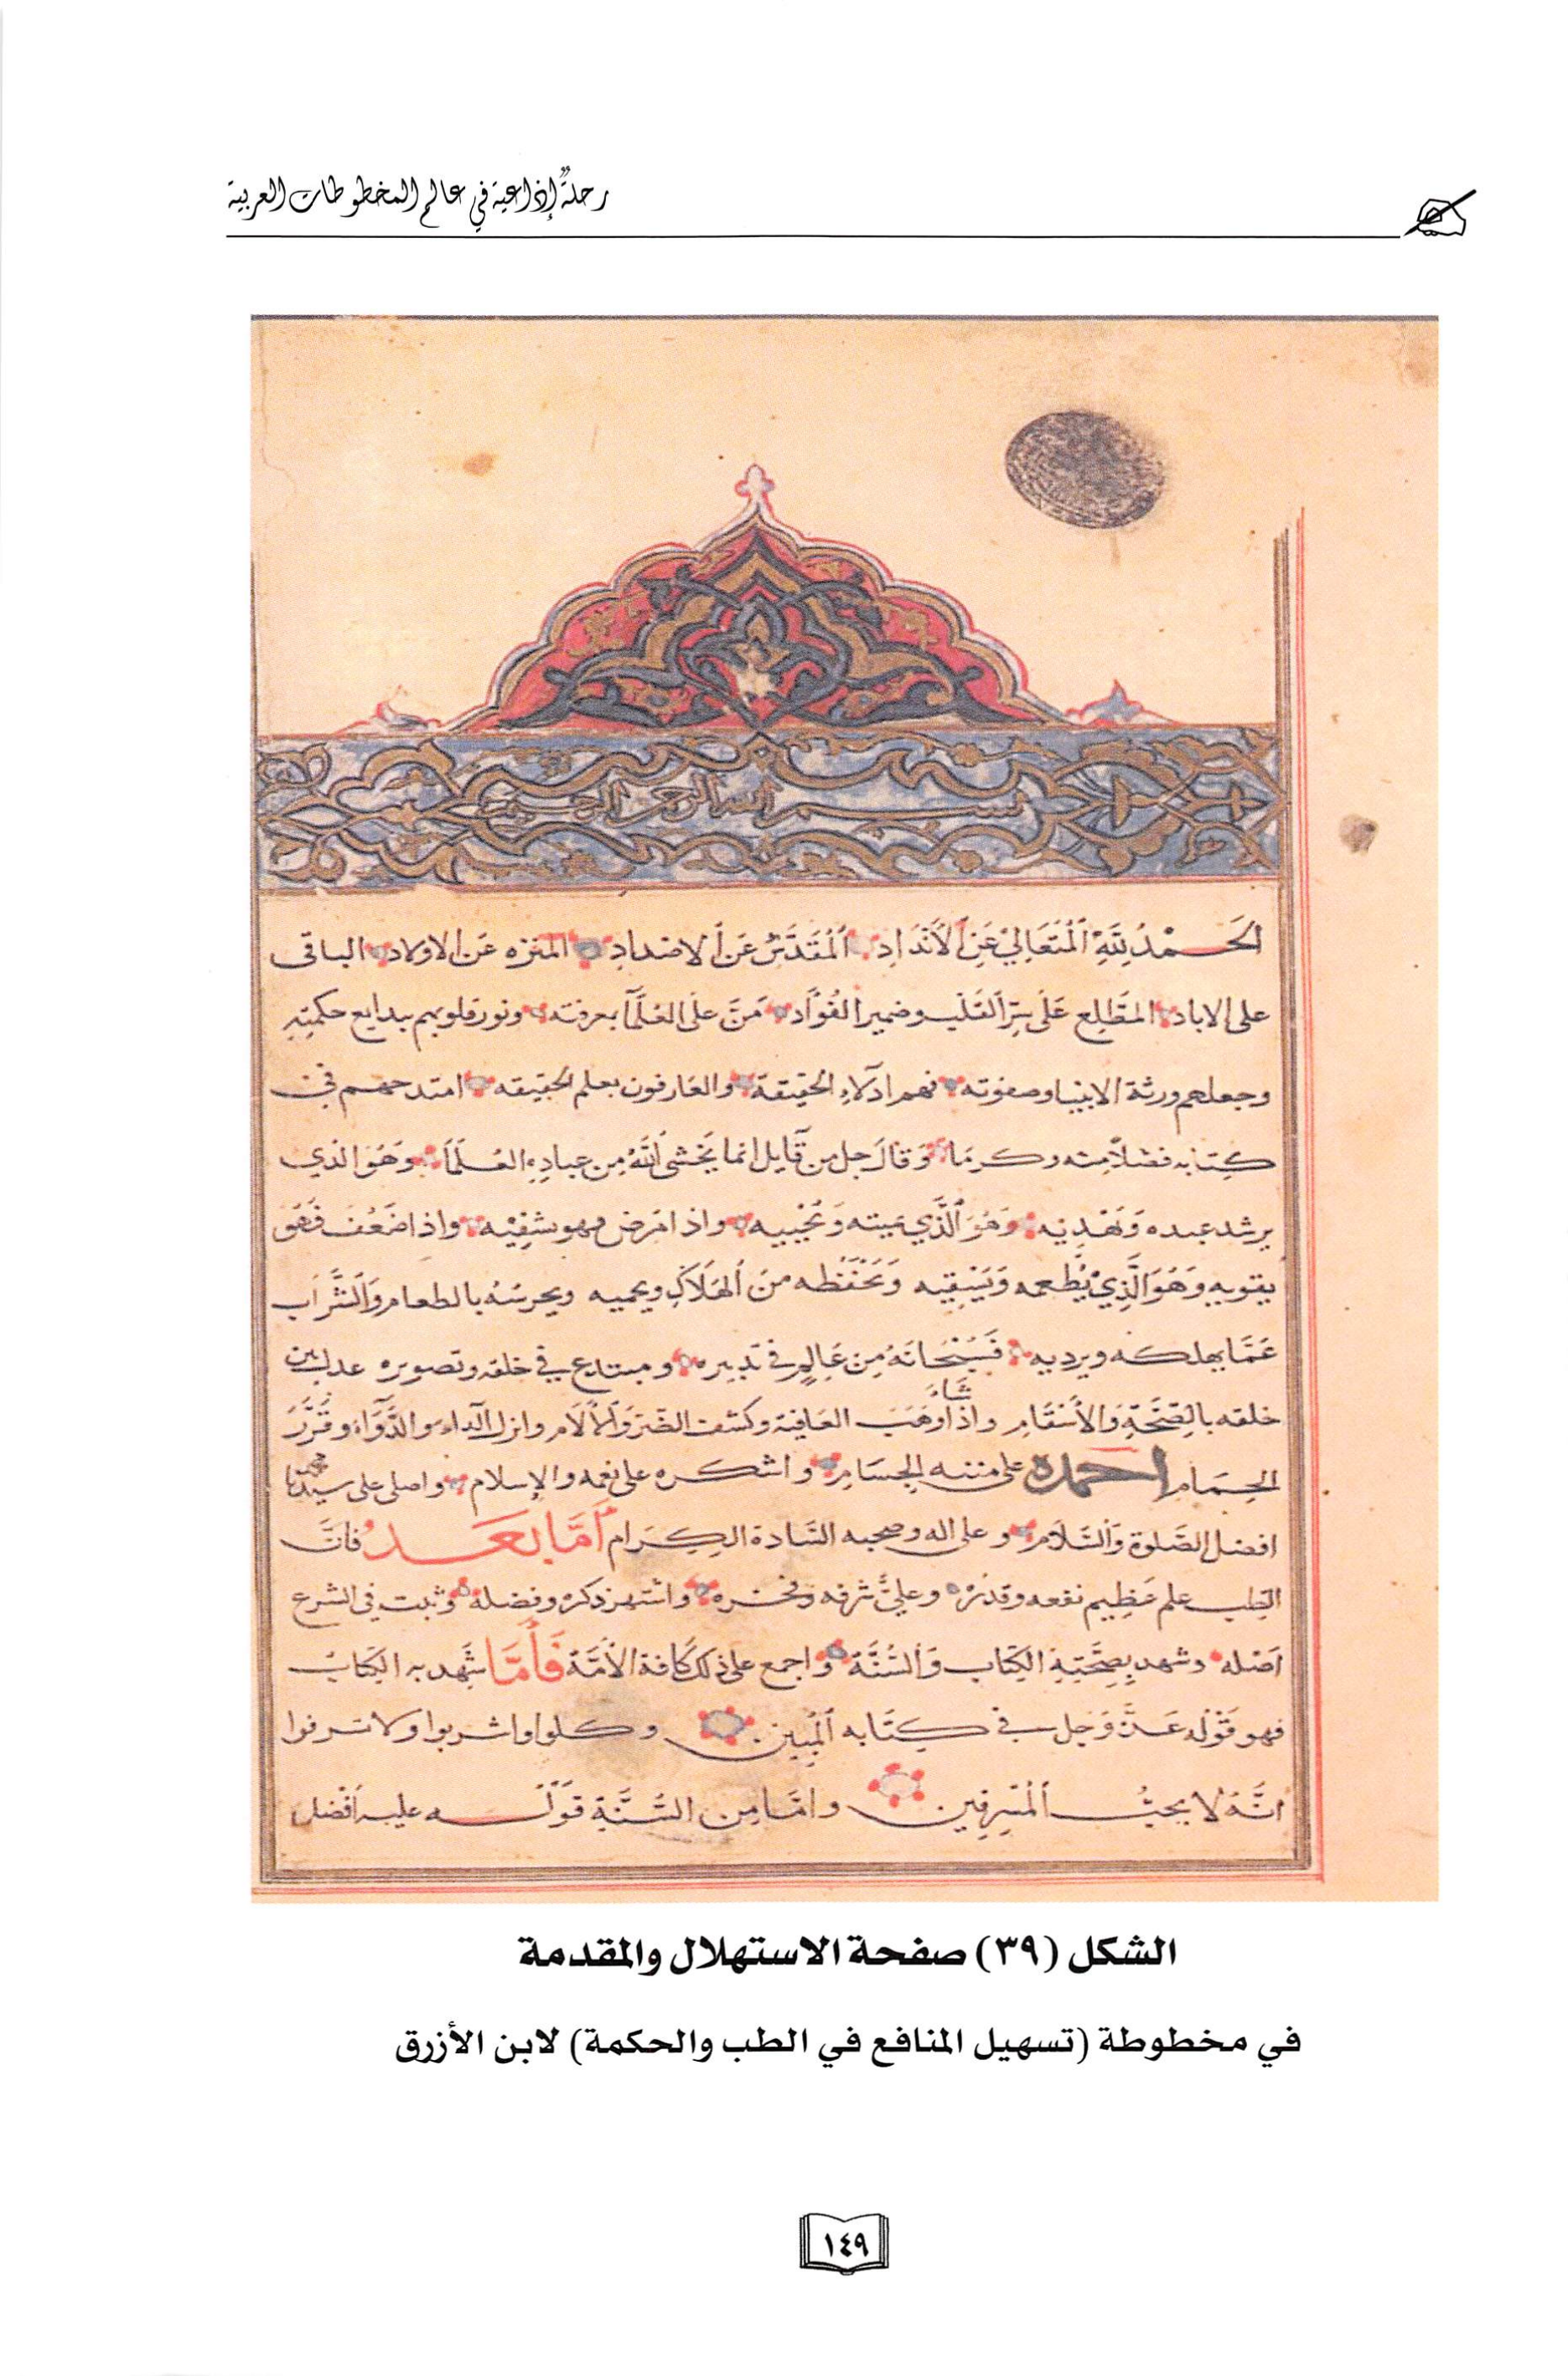 رحلةٌ إذاعية في عالم المخطوطات العربية
بسم الله الرحمن الرحيم
الحَمْدُ لِلَّهِ الْمُتَعَالِيْ عَنِ الْأَنْدَادِ الْمُقَدَّسِ عَنْ الاضدادِ المنزه عَن الاولاد الباقى
على الاباد المطَّلِع عَلَى سِرِّ القَلْب وضمير الفُؤَاد مَنَّ على العُلَمَآ بمعرفته ونور قلوبهم ببدايع حكمتِهِ
وجعلهم ورثة الانبيا وصفوته فهم ادلاء الحقيقة والعارفون بعلم الحقيقه امتدحهم في
كِتابه فضلاً منه وكرمَا وَقَالَ جل من قَآيل انما يَخْشى اللَّهَ مِن عبادِهِ العُلَمَآ وهُوَ الذي
يرشد عبده وَيَهْدِيه وَهُوَ الَّذي يميته وَيُحْيِيه واذا مَرض فهو يشفِيْه واذا ضَعُفَ فَهُوَ
يقويه وَهُوَ الَّذِيْ يُطْعمه وَيَسْقِيه وَيَحْفَظُه مِنَ الْهَلَاكِ ويحميه ويحرسُهُ بالطعام وَالشَّرَابِ
عَمَّا يهلكه ويرديه فَسُبْحَانَهُ مِن عَالِمٍ في تدبيره ومبتدع في خلقه وتصويره عدل بين
خلقه بالصِّحَّةِ وَالأَسْقَامِ واذا شَاءَ وَهَبَ العافية وكشف الضرّ وَالآلَام وانزل الداء والدَّوَاءَ وقَدَّرَ
الحِمَامِ احمده على مننه الجِسَامِ واشكره على نعمه والإسلام واصلى على سيدنا محمد
افضل الصَّلوة وَالسَّلَام وعلى اله وصحبه السَّادة الكِرَام أَمَّا بَعَدُ فانَّ
الطِّب علم عَظِيم نفعه وقدْرُهْ وعليٌّ شرفه وفخره واشتهر ذكره وفضله وثبت في الشرع
اصْله وشهد بِصِحَّتِهِ الكِتاب وَالسُّنَّة واجمع على ذلك كَافة الأمَّة فَأَمَّا شَهِد به الكِتابُ
فهو قَوْله عَزَّ وَجل في كِتَابه الْمُبِين وكلوا واشربوا ولا تسرفوا
انَّهُ لا يحبُّ الْمُسْرِفِين وامَّا مِن السُّنَّةِ قَوْلُه عليه افْضل
الشكل (٣٩) صفحة الاستهلال والمقدمة
في مخطوطة (تسهيل المنافع في الطب والحكمة) لابن الأزرق
١٤٩